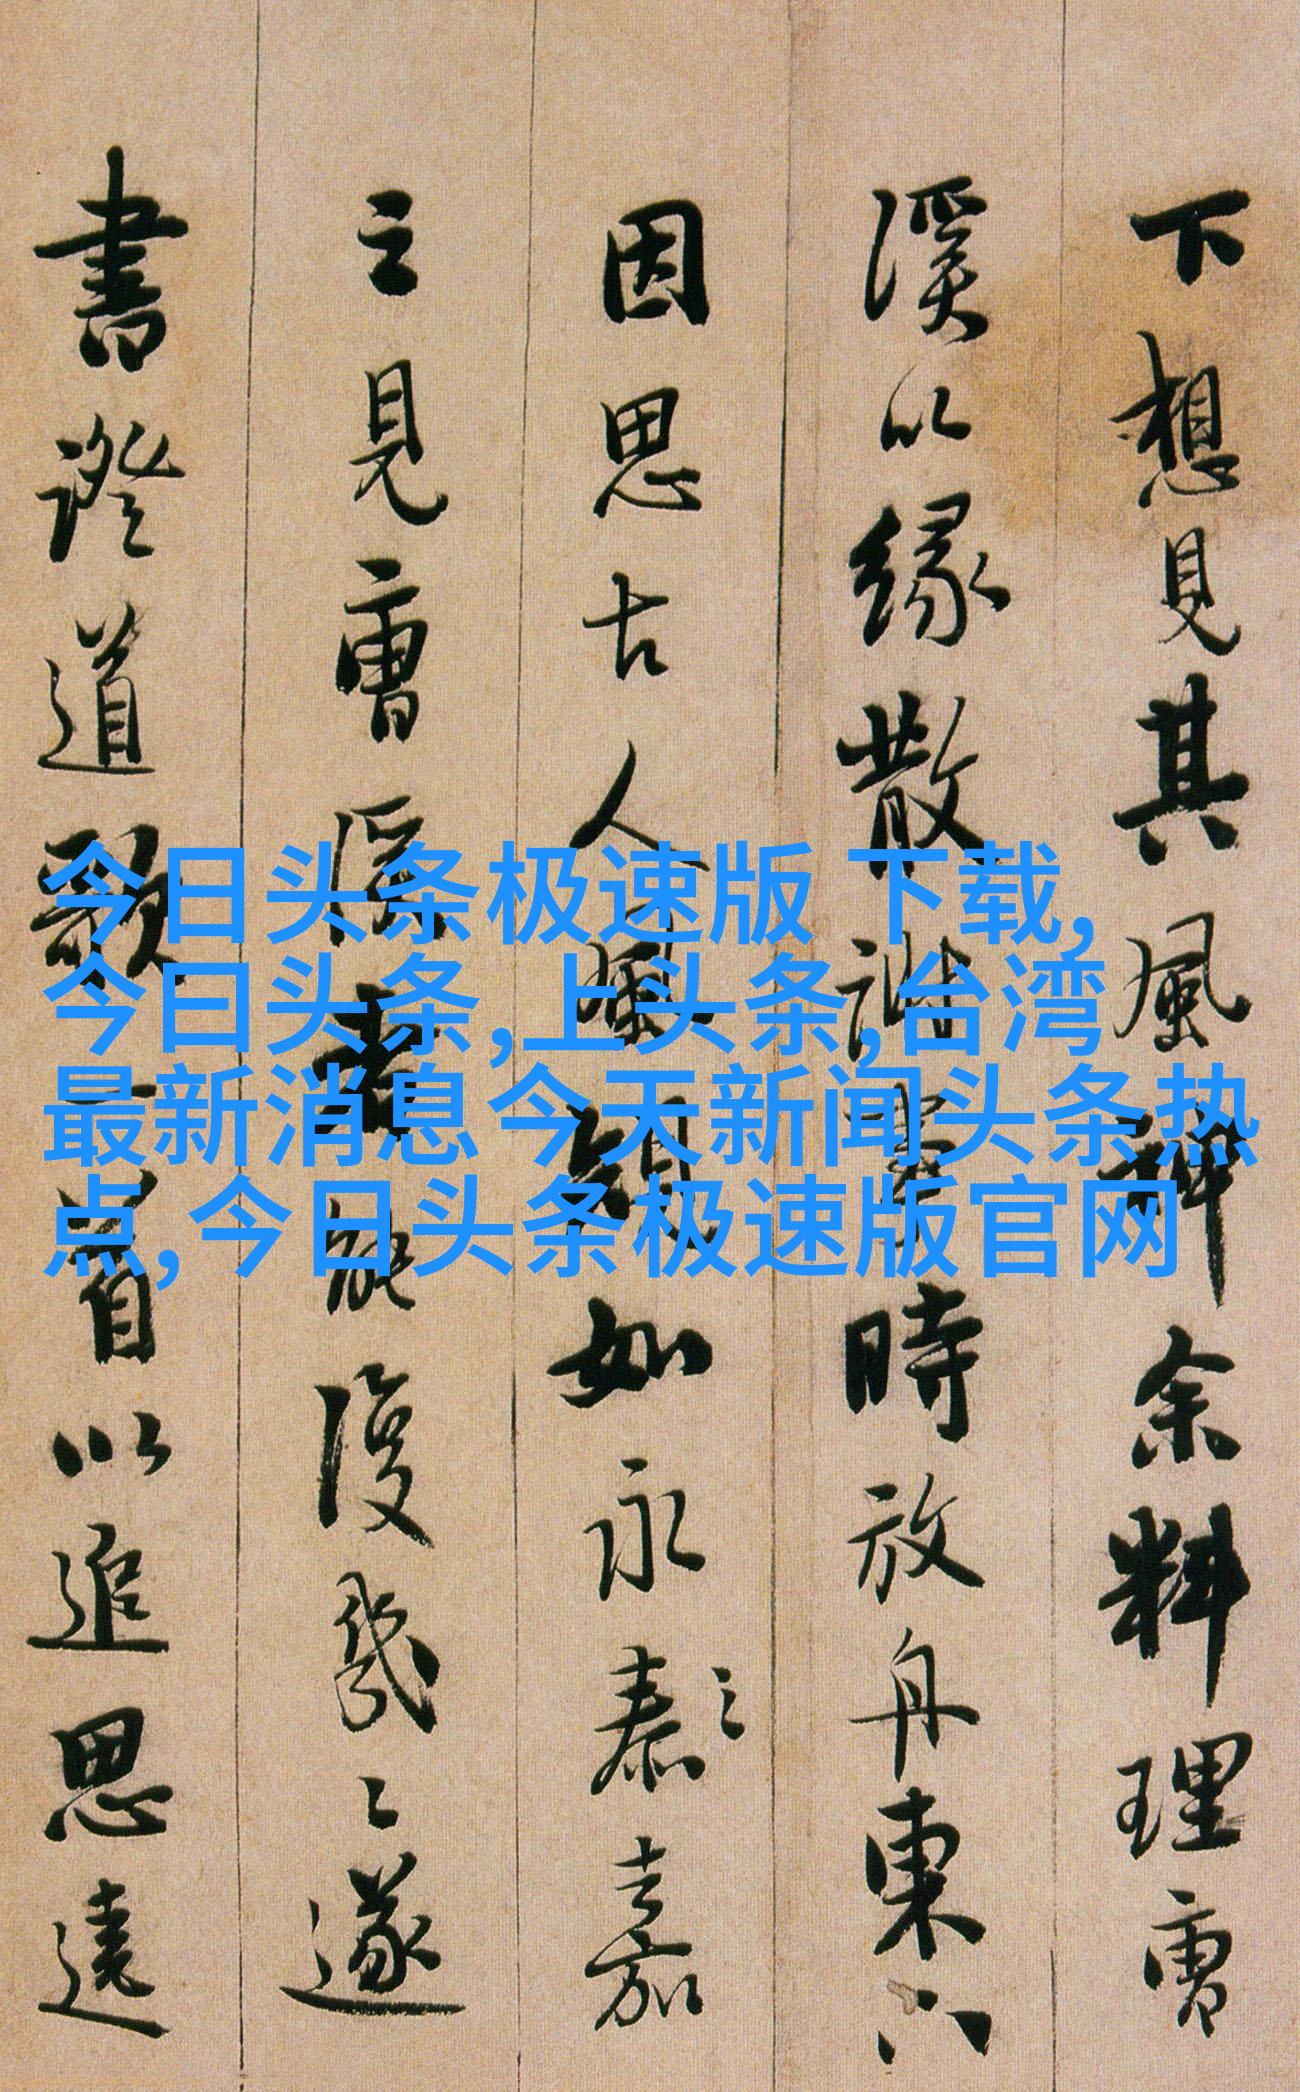 下想見其風神余料理曹
溪以緣散時放舟東
因思古人風規如永泰之嘉
之見曹溪者能復幾〻遂
書證道歌一首以追思遠
今日头条极速版 下载,
今曰头条,上头条,台湾
最新消息今天新闻头条热
点,今日头条极速版官网